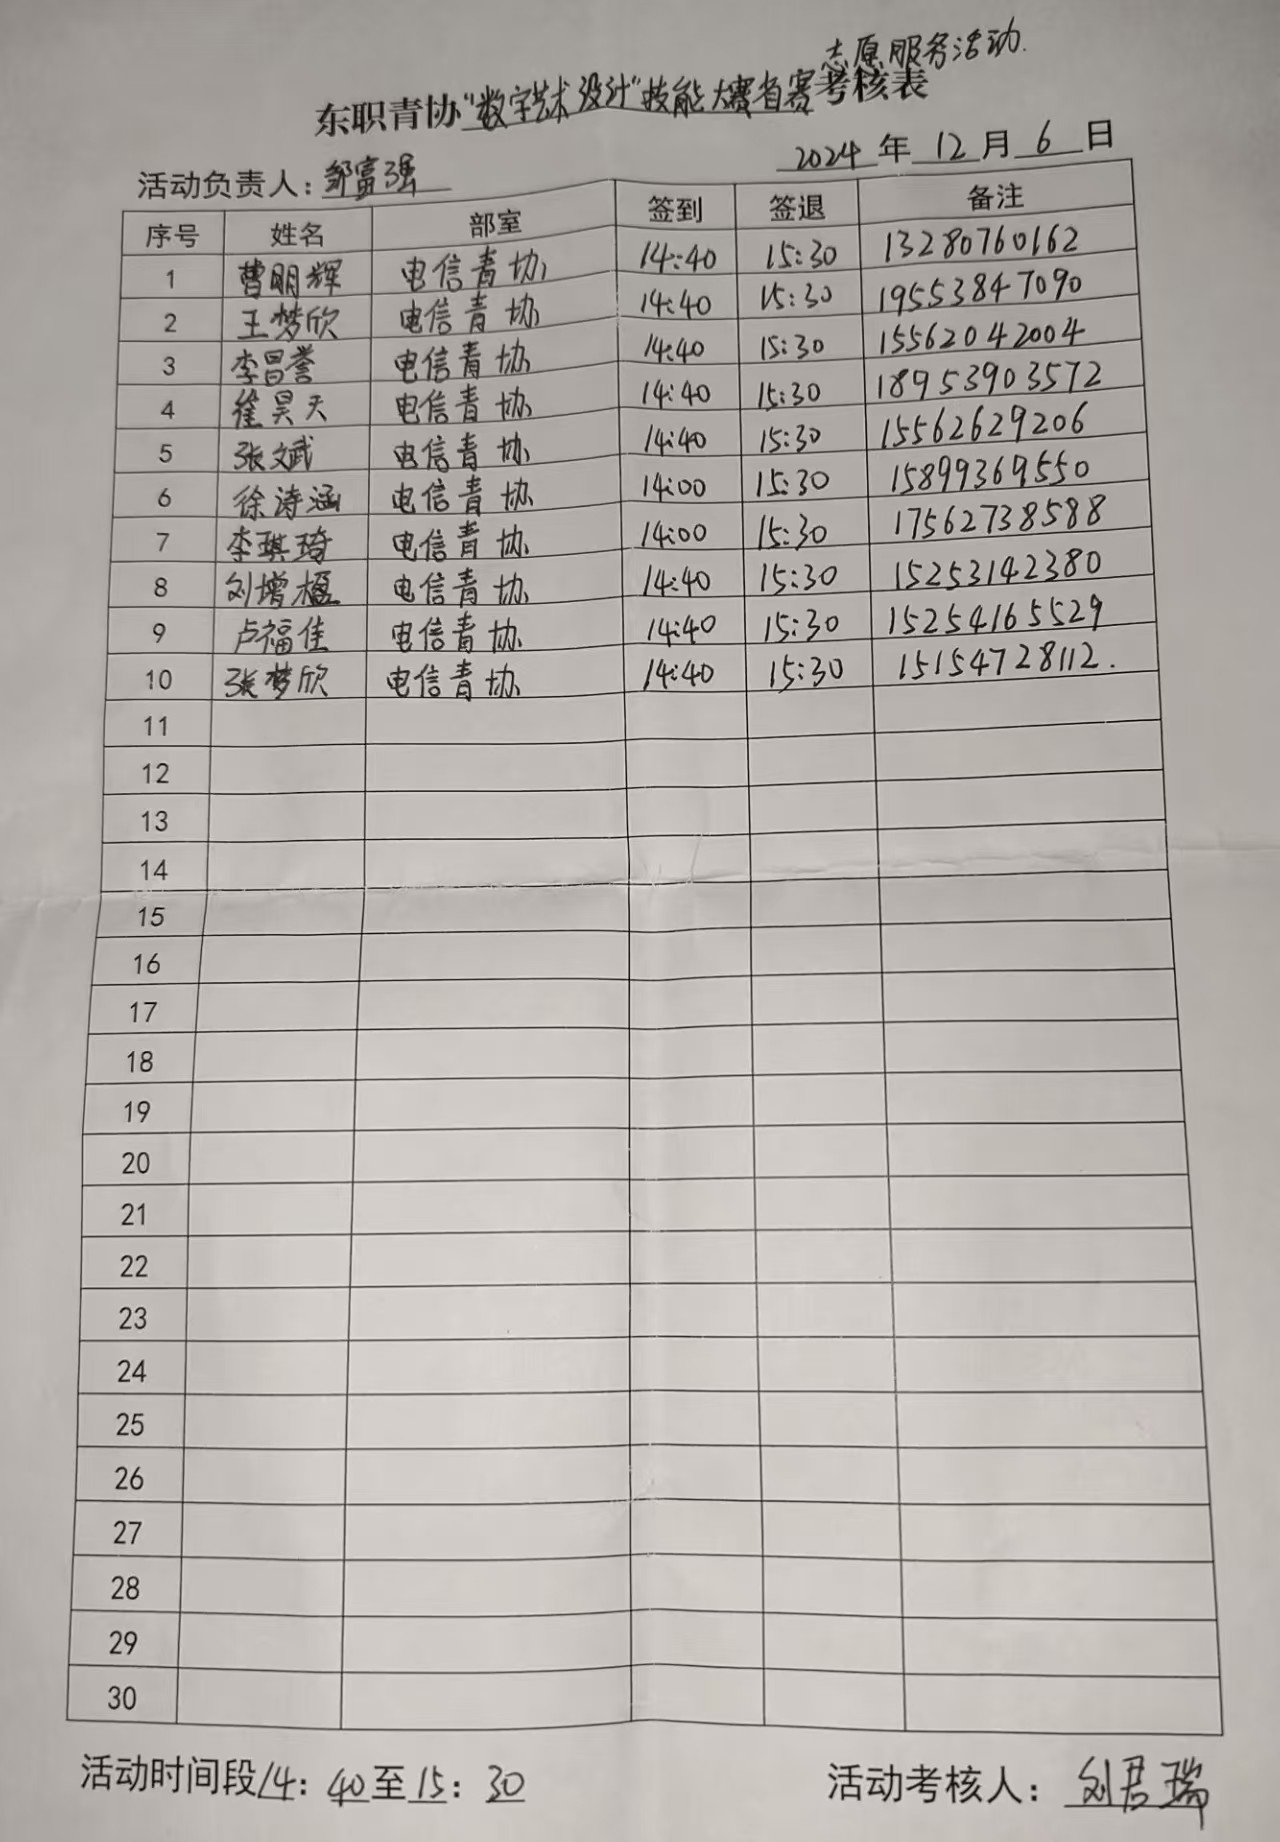 志愿服务活动.
东职青协"数字艺术设计"技能大赛省赛考核表
2024 年 12 月 6 日
活动负责人: 邹富强
序号 姓名 部室 签到 签退 备注
1 曹明辉 电信青协 14:40 15:30 13280760162
2 王梦欣 电信青协 14:40 15:30 19553847090
3 李昌誉 电信青协 14:40 15:30 15562042004
4 崔昊天 电信青协 14:40 15:30 18953903572
5 张文斌 电信青协 14:40 15:30 15562629206
6 徐涛涵 电信青协 14:00 15:30 15899369550
7 李琪琦 电信青协 14:00 15:30 17562738588
8 刘增楹 电信青协 14:40 15:30 15253142380
9 卢福佳 电信青协 14:40 15:30 15254165529
10 张梦欣 电信青协 14:40 15:30 15154728112.
11
12
13
14
15
16
17
18
19
20
21
22
23
24
25
26
27
28
29
30
活动时间段14: 40至15: 30 活动考核人: 刘君瑞